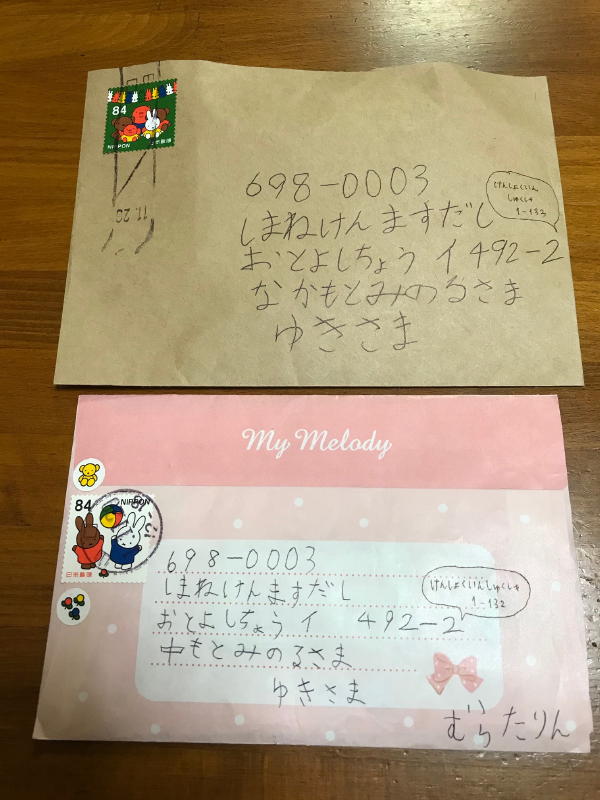 84
NIPPON 日本郵便
11.20
698-0003
しまねけんますだし
おとよしちょう イ492-2
けんしょくいん
しゅくしゃ
1-132
なかもとみのるさま
ゆきさま
My Melody
84 NIPPON
日本郵便
698-0003
しまねけんますだし
おとよしちょう イ 492-2
けんしょくいんしゅくしゃ
1-132
中もとみのるさま
ゆきさま
むらたりん